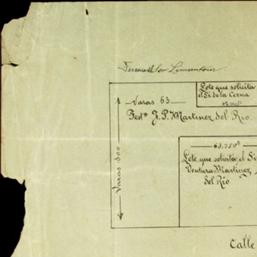 Lote que solicita
el Sr de la Cerna
Varas 63
J. P. Martinez del Rio
Varas 300
63.750
Lote que solicita el Sr
Ventura Martinez
del Rio
Calle